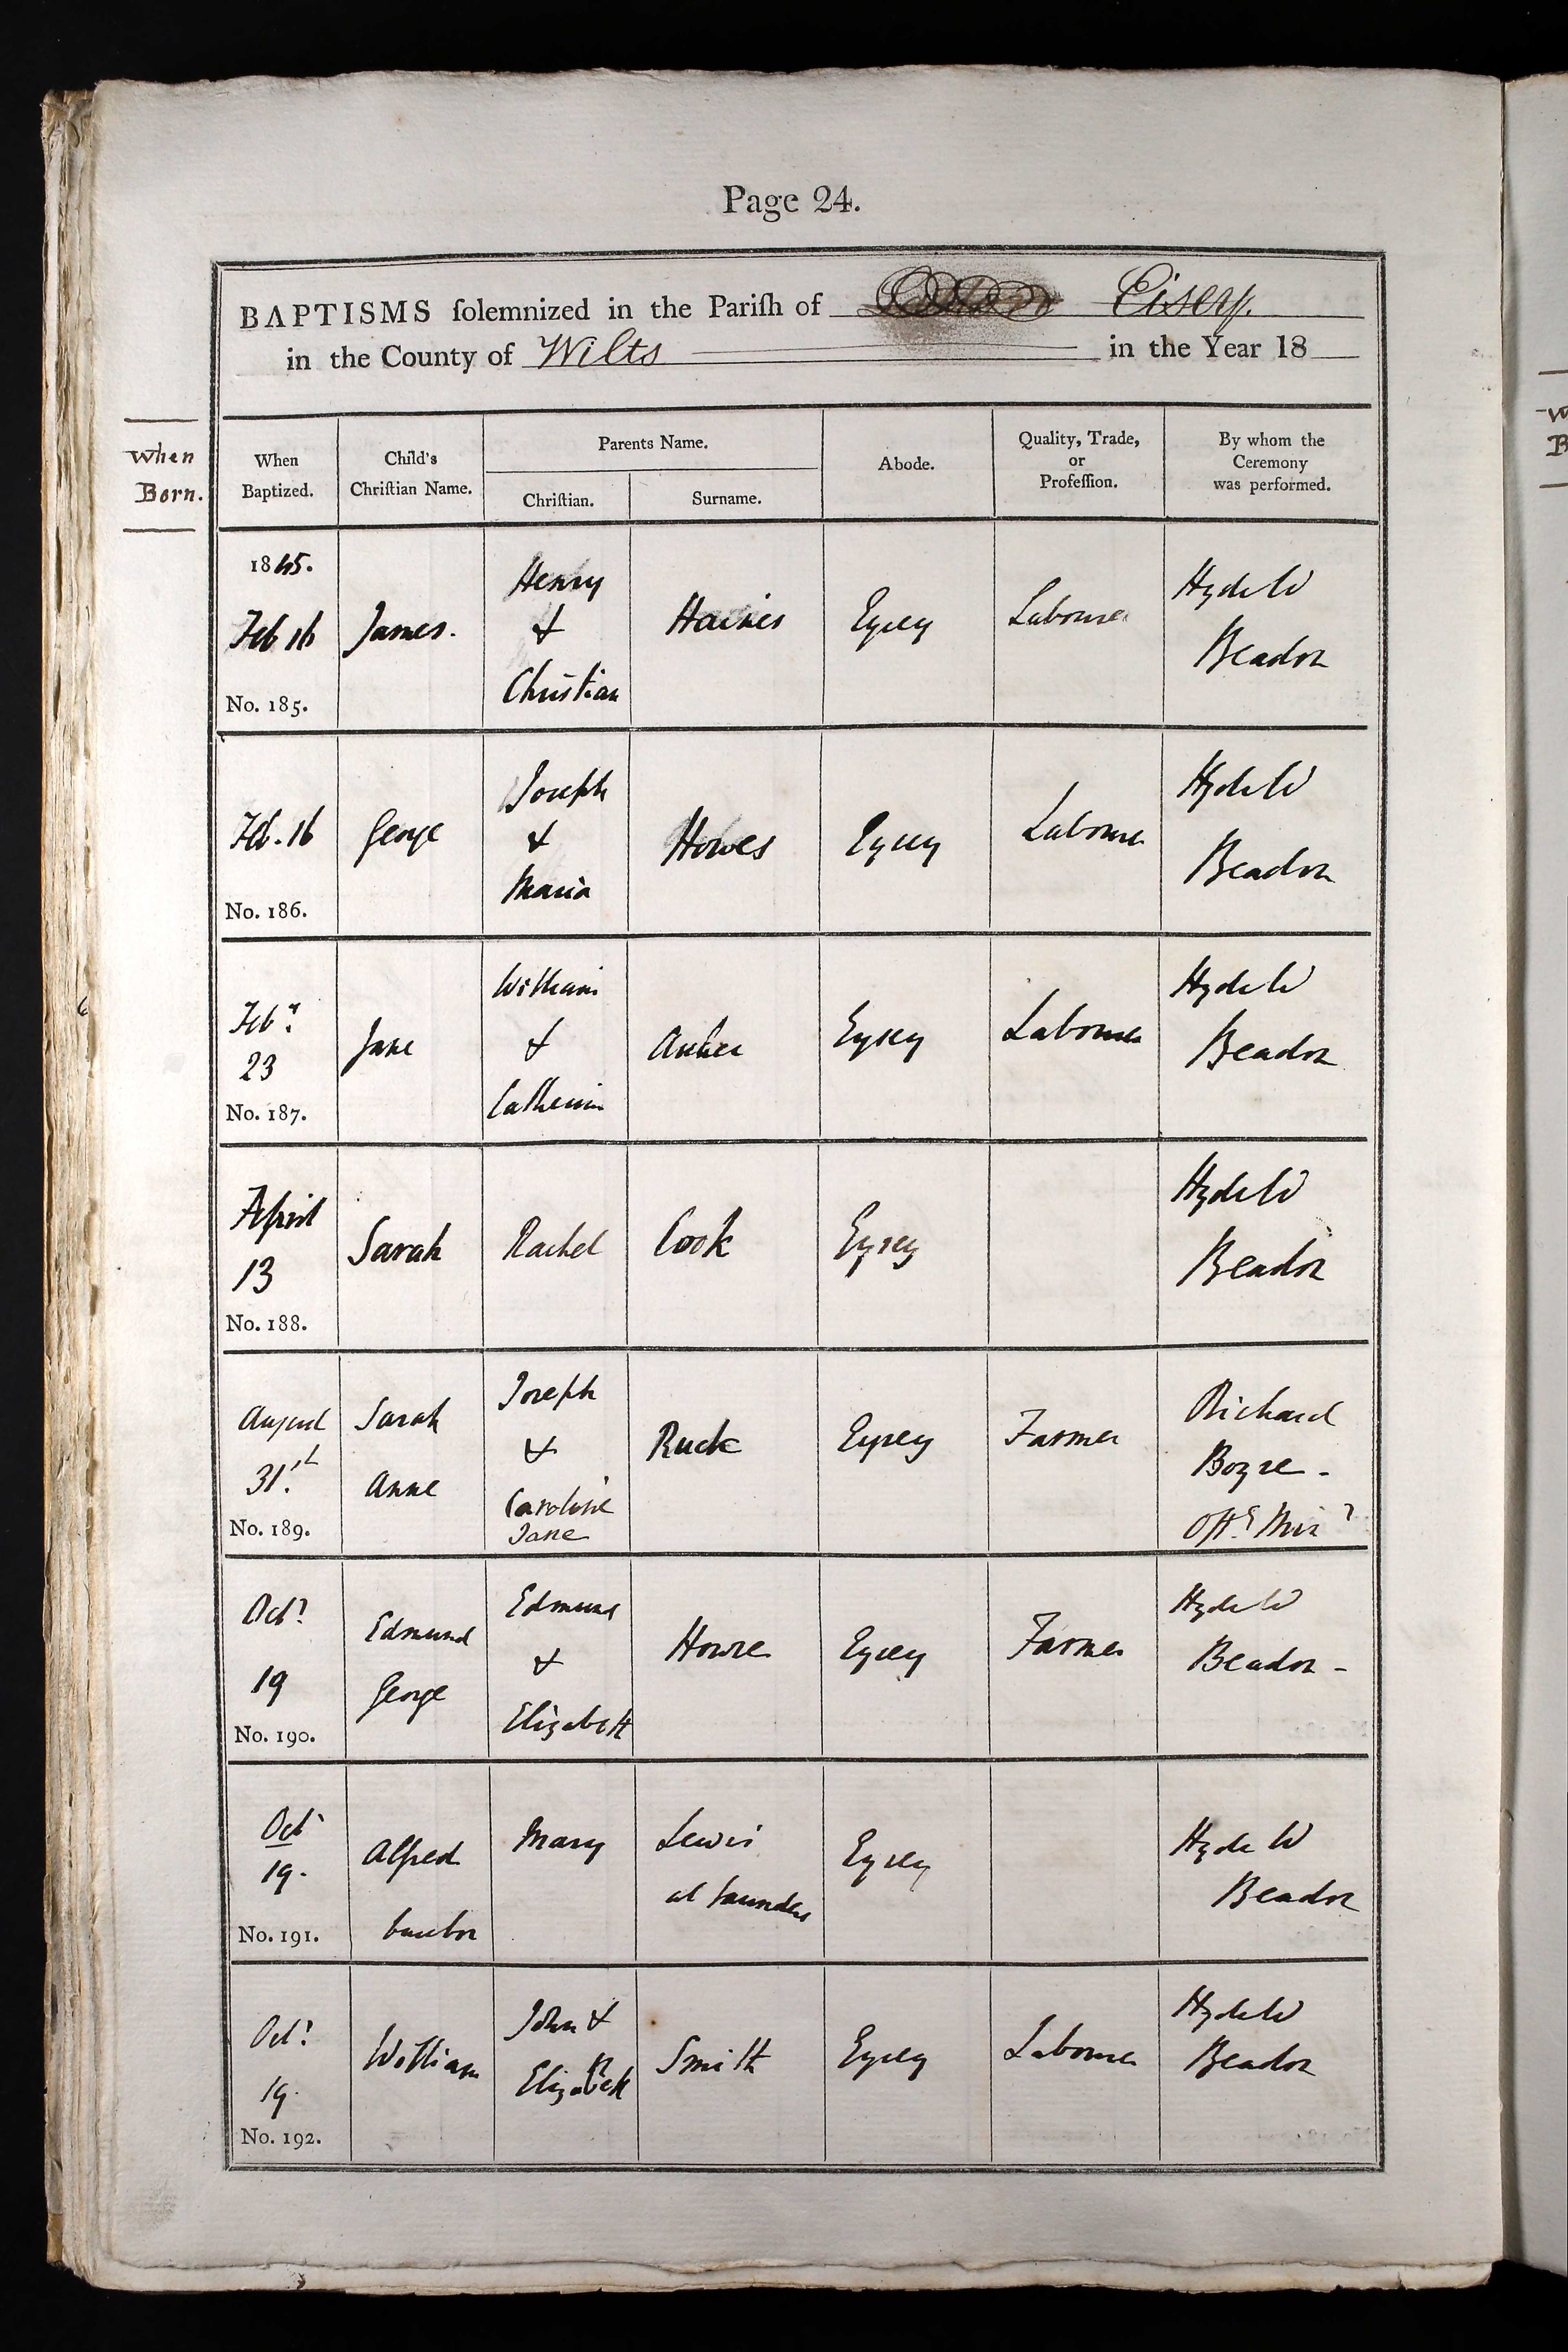 Page 24.
BAPTISMS ſolemnized in the Pariſh of Eisey.
in the County of Wilts in the Year 18
When
Born.
When
Baptized.
Child's
Chriſtian Name.
Parents Name.
Chriſtian.
Surname.
Abode.
Quality, Trade,
or
Profeſſion.
By whom the
Ceremony
was performed.
1845.
Feb 16
No. 185.
James.
Henry
&
Christian
Haines
Eysey
Labourer
Hyde W
Beadon
Feb. 16
No. 186.
George
Joseph
&
Maria
Howes
Eysey
Labourer
Hyde W
Beadon
Feby
23
No. 187.
Jane
William
&
Catherine
Eysey
Labourer
Hyde W
Beadon
April
13
No. 188.
Sarah
Rachel
Cook
Eysey
Hyde W
Beadon
August
31st
No. 189.
Sarah
Anne
Joseph
&
Caroline
Jane
Ruck
Eysey
Farmer
Richard
Offg Minr
Octr
19
No. 190.
Edmund
George
Edmund
&
Elizabeth
Howse
Eysey
Farmer
Hyde W
Beadon -
Octr
19.
No. 191.
Alfred
Mary
Lewis
al Saunders
Eysey
Hyde W
Beadon
Octr
19.
No. 192.
William
John &
Elizabeth
Smith
Eysey
Labourer
Hyde W
Beadon